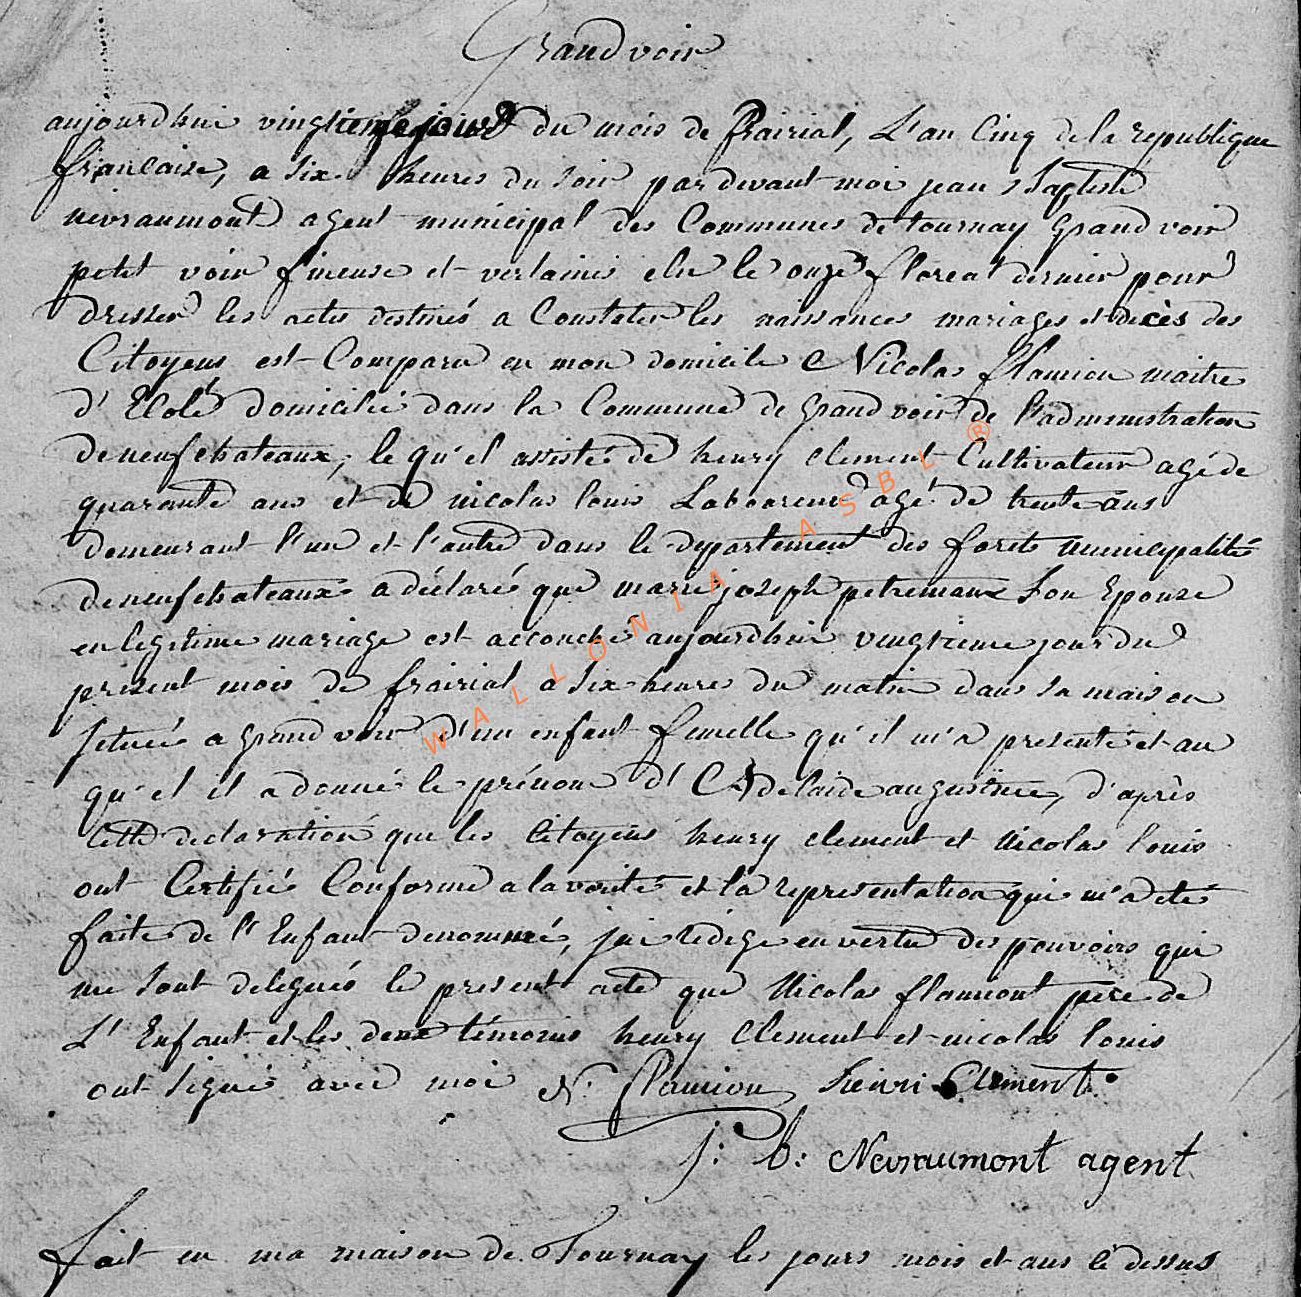 Grandvoir
aujourdhui vingtieme jour du mois de frairial, L'an Cinq de la republique
francaise, a six heures du soir par devant moi jean baptiste
nevraumont agent municipal des Communes de tournay Grand voir
petit voir fineuse et verlaine elu le onze floreal dernier pour
dresser les actes destinés a Constater les naissances mariages et décès des
Citoyens est Comparu en mon domicile Nicolas flamion maitre
d'Ecole domicilié dans la Commune de grand voir de l'administration
de neufchateaux, le qu'el assisté de henry clement Cultivateur agé de
quarante ans et de nicolas louis Laboureur agé de trente ans
demeurant l'un et l'autre dans le departement des forets municipalité
de neufchateaux a déclaré que marie joseph petremaux son Epouse
en legitime mariage est accouché aujourdhui vingtieme jour du
present mois de frairial a six heures du matin dans sa maison
située a grand voir d'un enfant femelle qu'il m'a presenté et au
qu'el il a donné le prénom d'Adelaide augustine, d'après
cette declaration que les Citoyens henry clement et Nicolas louis
ont Certifié Conforme a la verité et la representation qui m'a eté
faite de l'Enfant denommé, j'ai rédigé en vertu des pouvoirs qui
me sont delegués le present acte que Nicolas flamiont pere de
L'Enfant et les deux témoins henry Clement et nicolas louis
ont signé avec moi N. flamion henri Clement
j: b: Nevraumont agent
fait en ma maison de Tournay les jours mois et ans ci dessus
WALLONIA ASBL ®